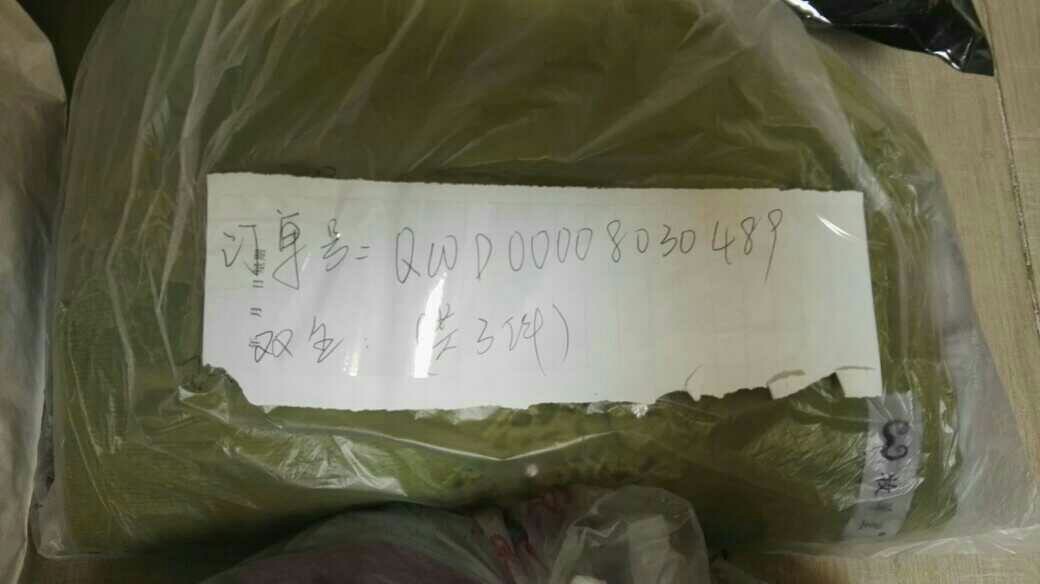 订单号= QWD00008030489
双全. (共3件)